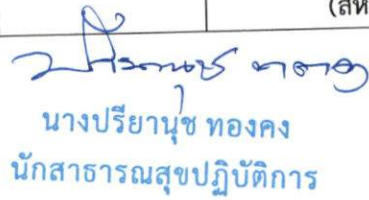 (สห
นางปรียานุช ทองคง
นักสาธารณสุขปฏิบัติการ